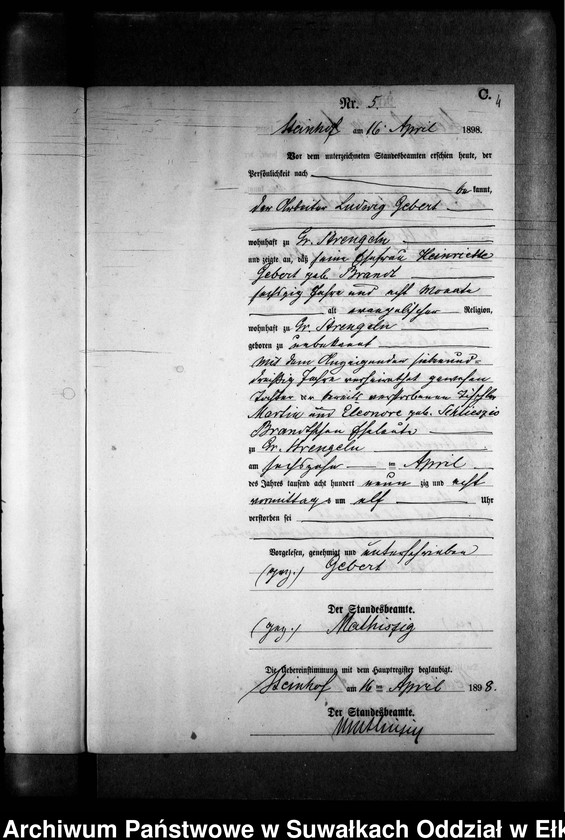 C.
4
Nr. 5.
Steinhof am 16. April 1898.
Vor dem unterzeichneten Standesbeamten erschien heute, der
Persönlichkeit nach
bekannt,
der Arbeiter Ludwig Gebert
wohnhaft zu Gr. Strengeln
und zeigte an, daß seine Ehefrau Heinriette
Gebert geb. Brandt
sechszig Jahre und acht Monate
alt evangelischer Religion,
wohnhaft zu Gr. Strengeln
geboren zu unbekannt
mit dem Anzeigenden siebenund-
dreißig Jahre verheirathet gewesen
Tochter der bereits verstorbenen Tischler
Martin und Eleonore geb.
Brandtschen Eheleute
zu Gr. Strengeln
am sechszehn im April
des Jahres tausend acht hundert neunzig und acht
vormittags um elf Uhr
verstorben sei
Vorgelesen, genehmigt und unterschrieben
(gez.) Gebert
Der Standesbeamte.
(gez.)
Die Uebereinstimmung mit dem Hauptregister beglaubigt.
Steinhof am 16ten April 1898.
Der Standesbeamte.
Archiwum Państwowe w Suwałkach Oddział w Ełk